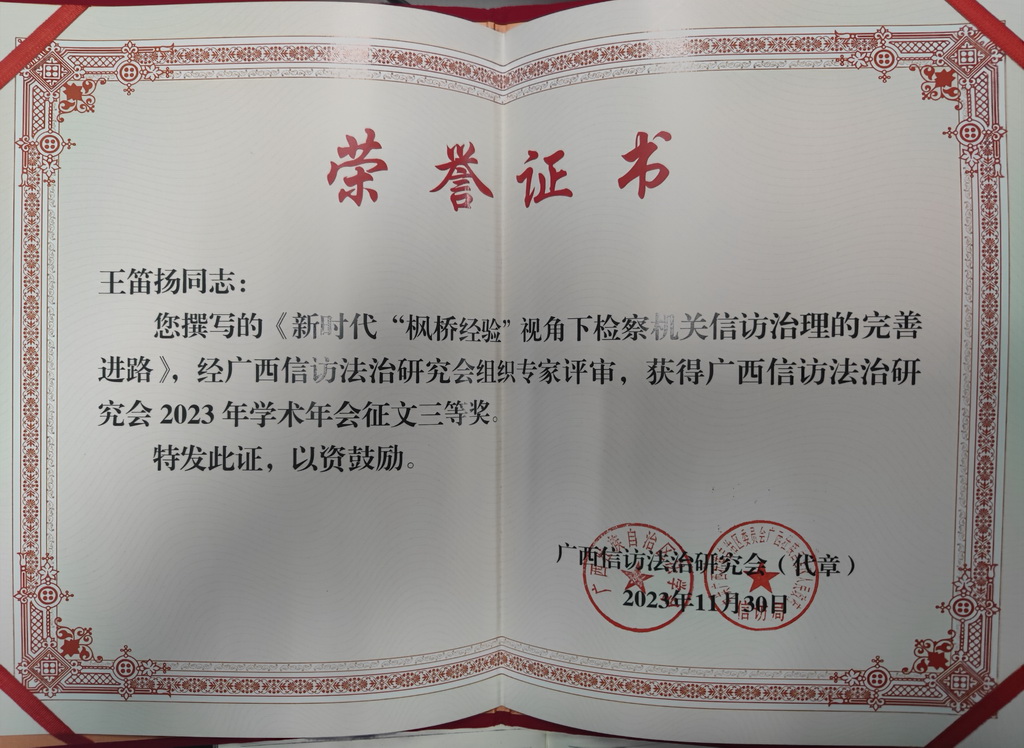 荣誉证书
王笛扬同志：
您撰写的《新时代“枫桥经验”视角下检察机关信访治理的完善
进路》，经广西信访法治研究会组织专家评审，获得广西信访法治研
究会 2023 年学术年会征文三等奖。
特发此证，以资鼓励。
广西信访法治研究会（代章）
2023年11月30日
信访局